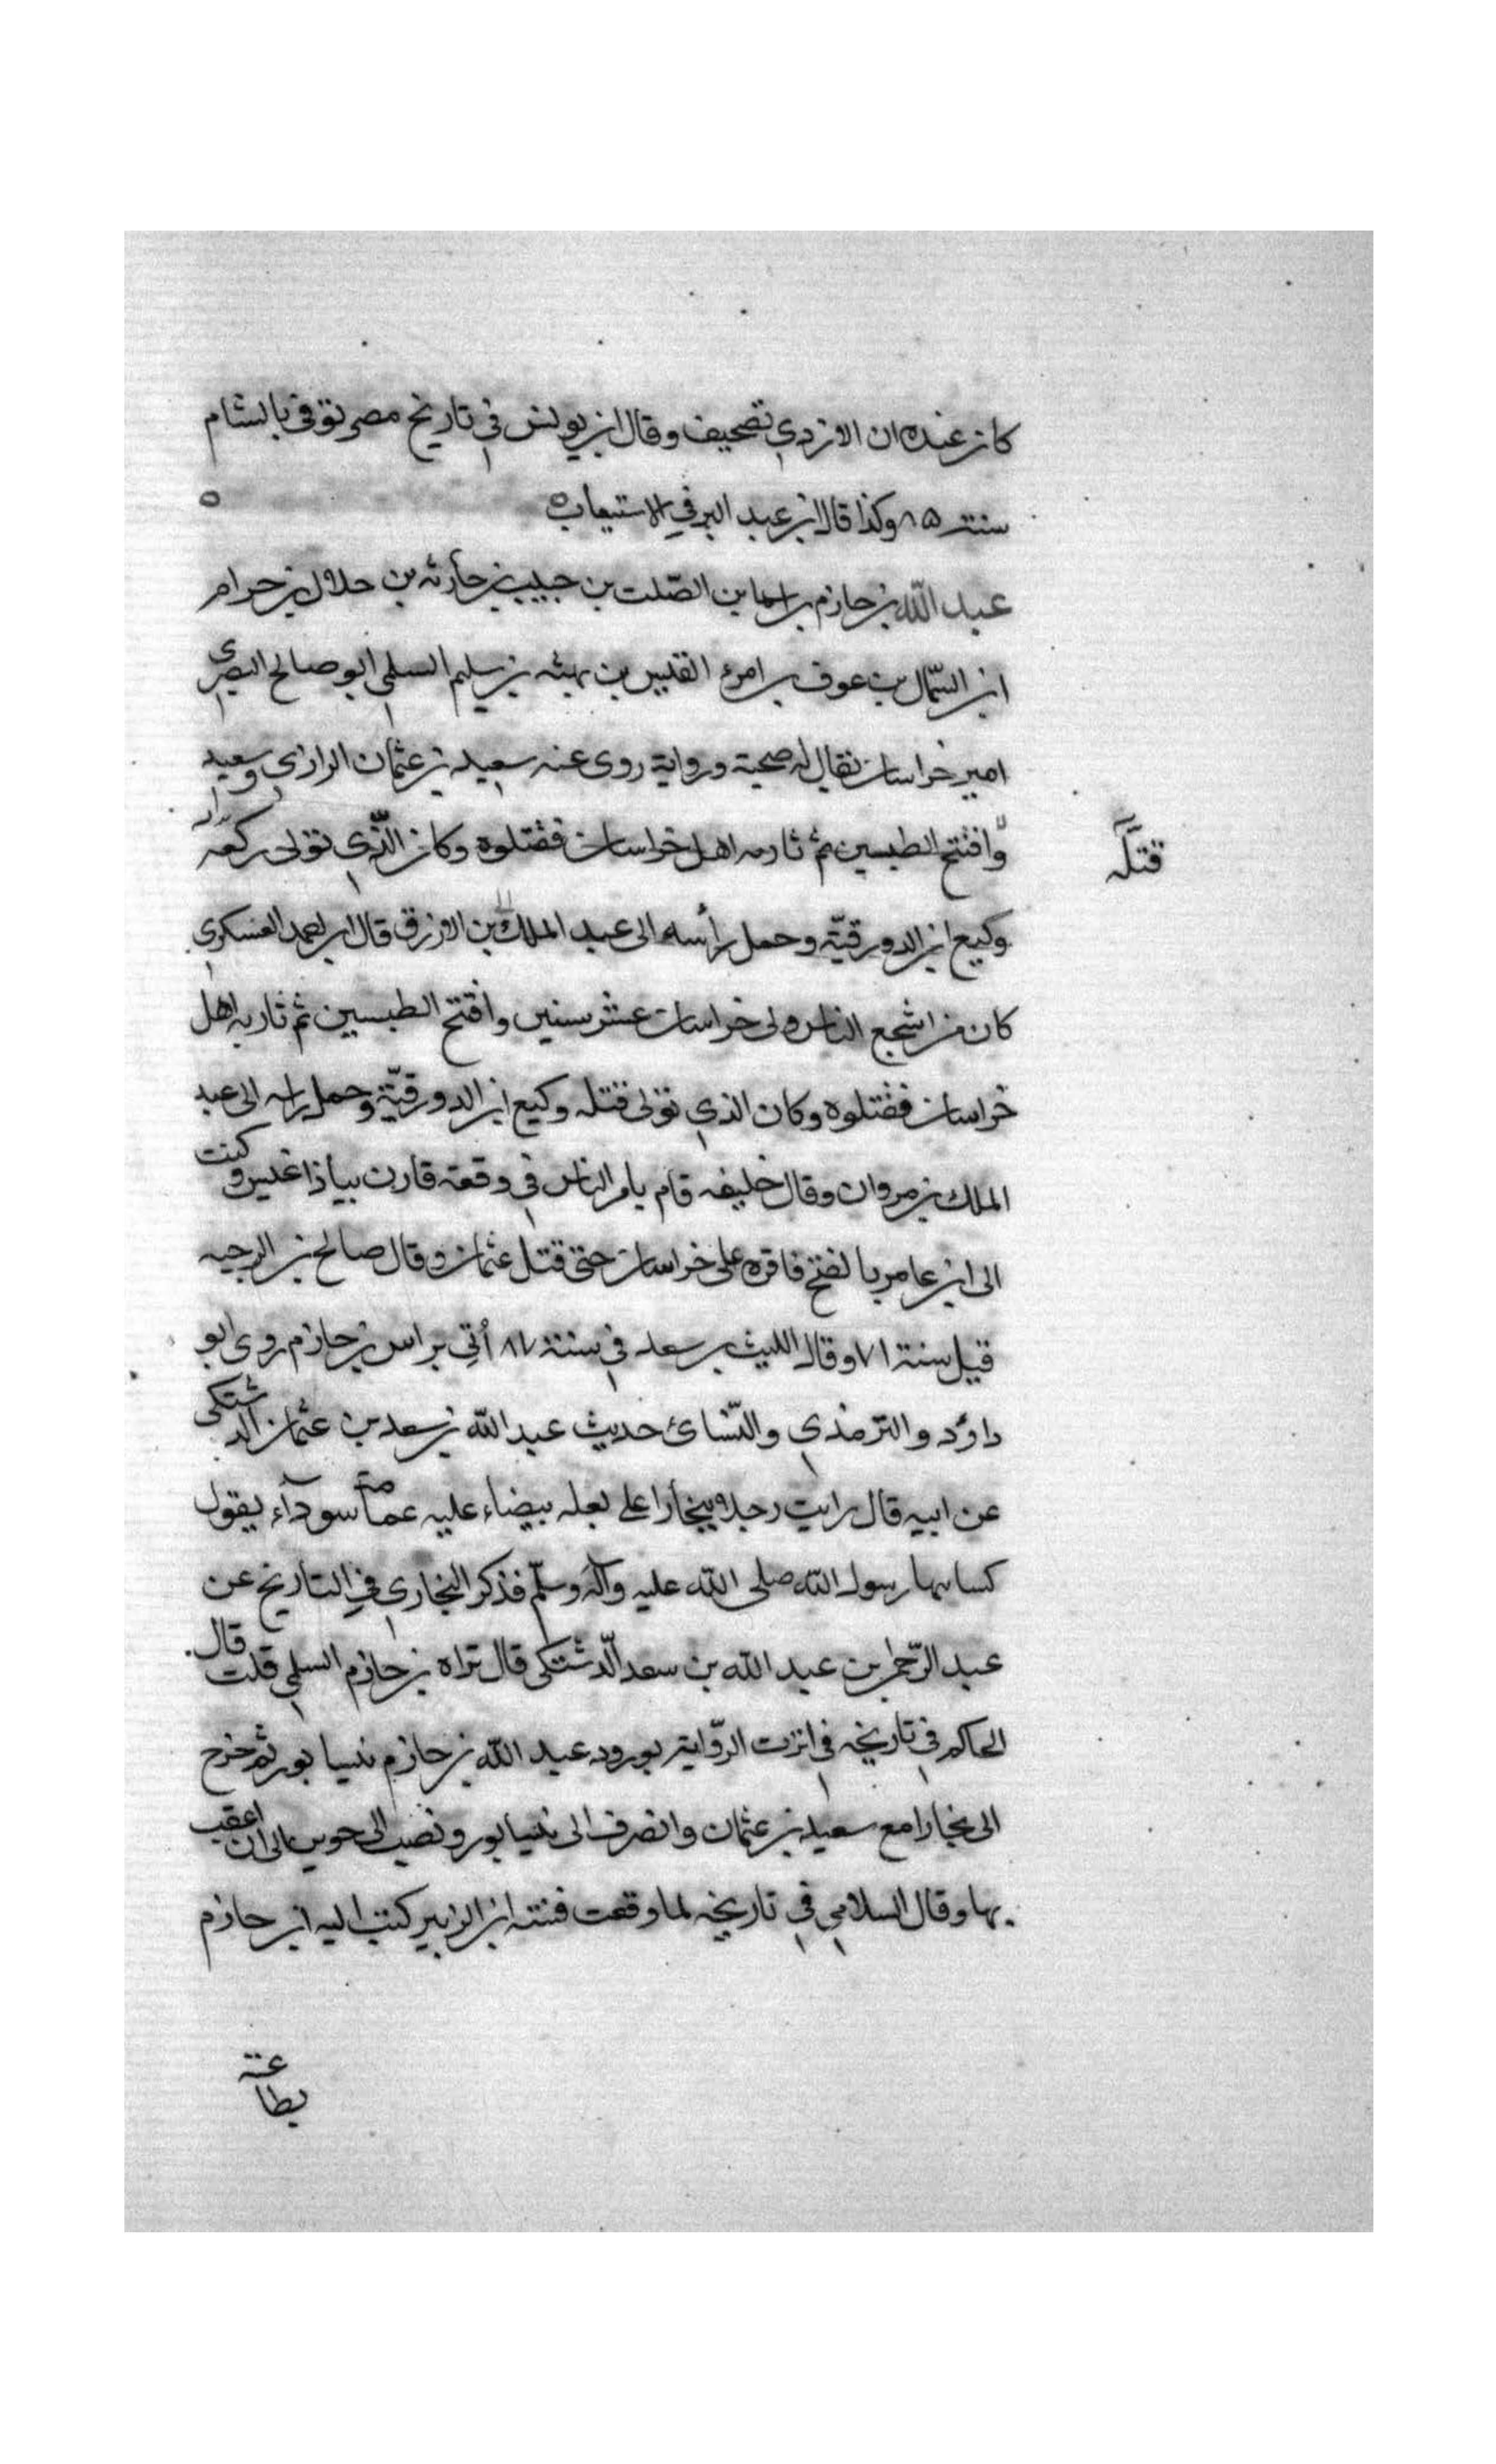 كان عنده ان الازدي تصحيف وقال ابن يونس في تاريخ مصر توفي بالشام
سنة ٨٥ وكذا قال ابن عبد البر في الاستيعاب ٥
عبد الله بن حازم بن اسما بن الصّلت بن حبيب بن حارثه بن حلال بن حرام
ابن السّمال بن عوف بن امرء القيس بن بهثه بن سليم السلمي ابو صالح البصري
امير خراسان يقال له صحبة ورواية روى عنه سعيد بن عثمان الرازي وسعيد
وافتتح الطبسين ثم ثار به اهل خراسان فقتلوه وكان الّذي تولى
قتله
وكيع ابن الدورقيّة وحمل رأسه الى عبد الملك بن الازرق قال ابو احمد العسكري
كان من اشجع الناس ولى خراسان عشر سنين وافتتح الطبسين ثم ثار به اهل
خراسان فقتلوه وكان الذي تولى قتله وكيع ابن الدورقيّة وحمل راسه الى عبد
الملك بن مروان وقال خليفه قام بامر الناس في وقعة قارن بباذاغيس وكتب
الى ابن عامر بالفتح فاقره على خراسان حتى قتل عثمان وقال صالح بن الوجيه
قيل سنة ٧١ وقال الليث بن سعد في سنة ٨٧ أتي براس بن حازم روى ابو
داؤد والترمذي والنّسائ حديث عبد الله بن سعد بن عثمان الدشتكى
عن ابيه قال رايت رجلا ببخارا على بغله بيضاء عليه عمامة سوداء يقول
كسانيها رسول الله صلى الله عليه وآله وسلّم فذكر البخارى في التاريخ عن
عبد الرّحمن بن عبد الله بن سعد الّدشتكى قال نراه بن حازم السلمي قلت قال
الحاكم في تاريخه الرّواية بورود عبد الله بن حازم نيسابور ثم خرج
الى بخارا مع سعيد بن عثمان وانصرف الى نيسابور الى ان اعقب
بها وقال السلامي في تاريخه لما وقعت فتنة ابن الزبير كتب اليه ابن حازم
بطاعته